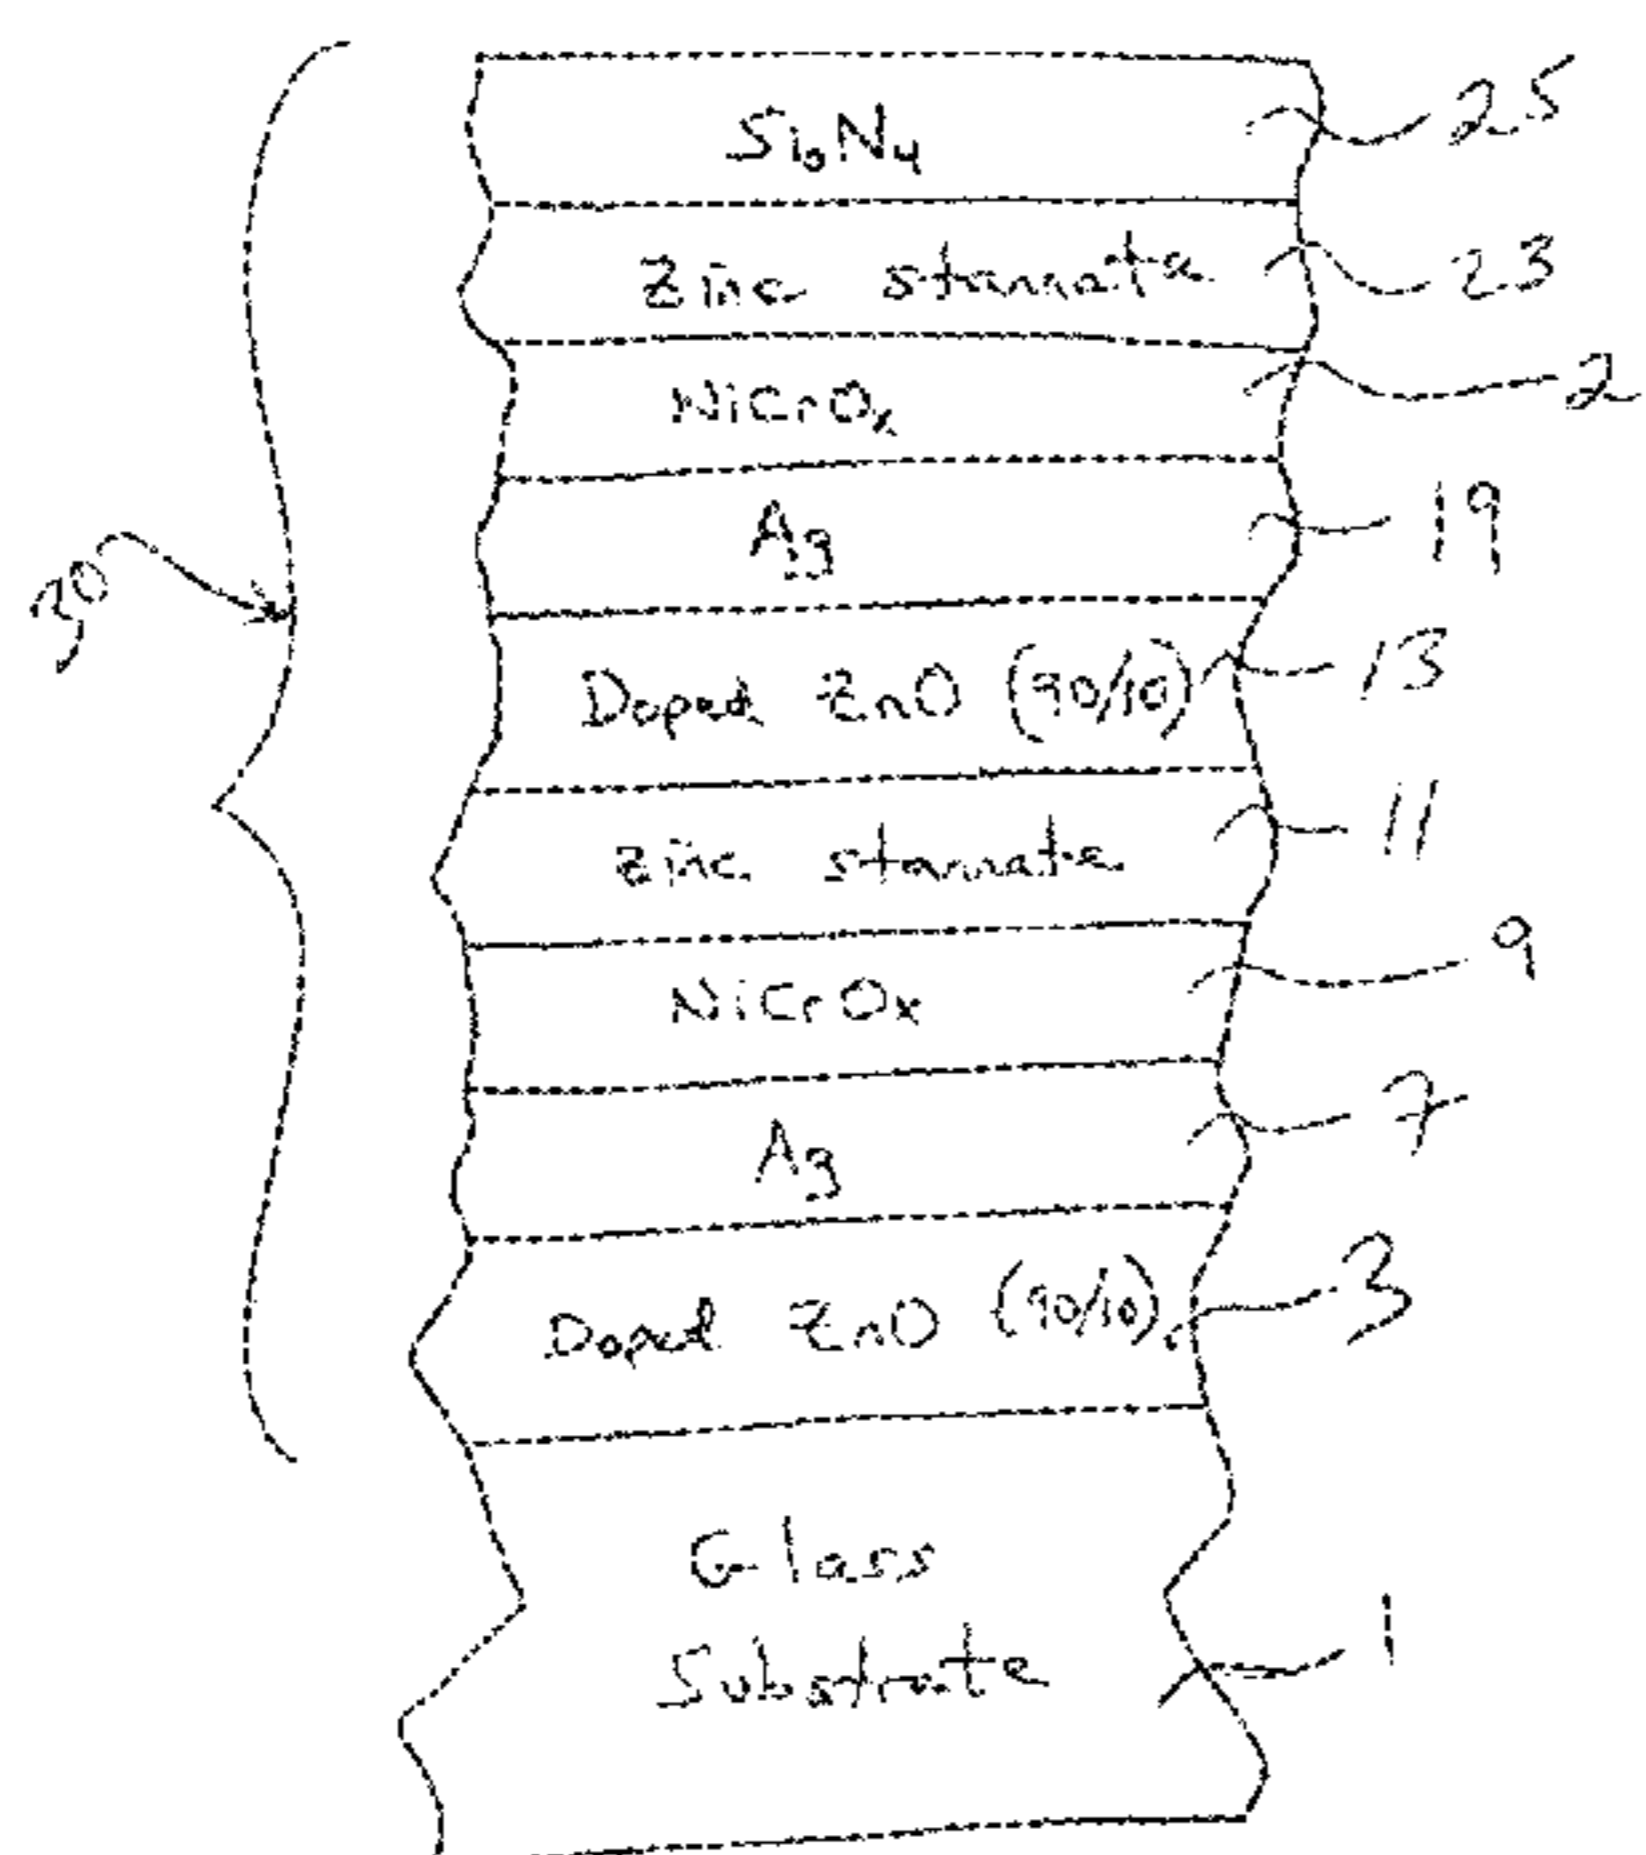 Si₃N₄ 25
Zinc stannate 23
NiCrOₓ 2
Ag 19
30
Doped ZnO (90/10) 13
zinc stannate 11
NiCrOx 9
Ag 7
Doped ZnO (90/10) 3
Glass
Substrate 1